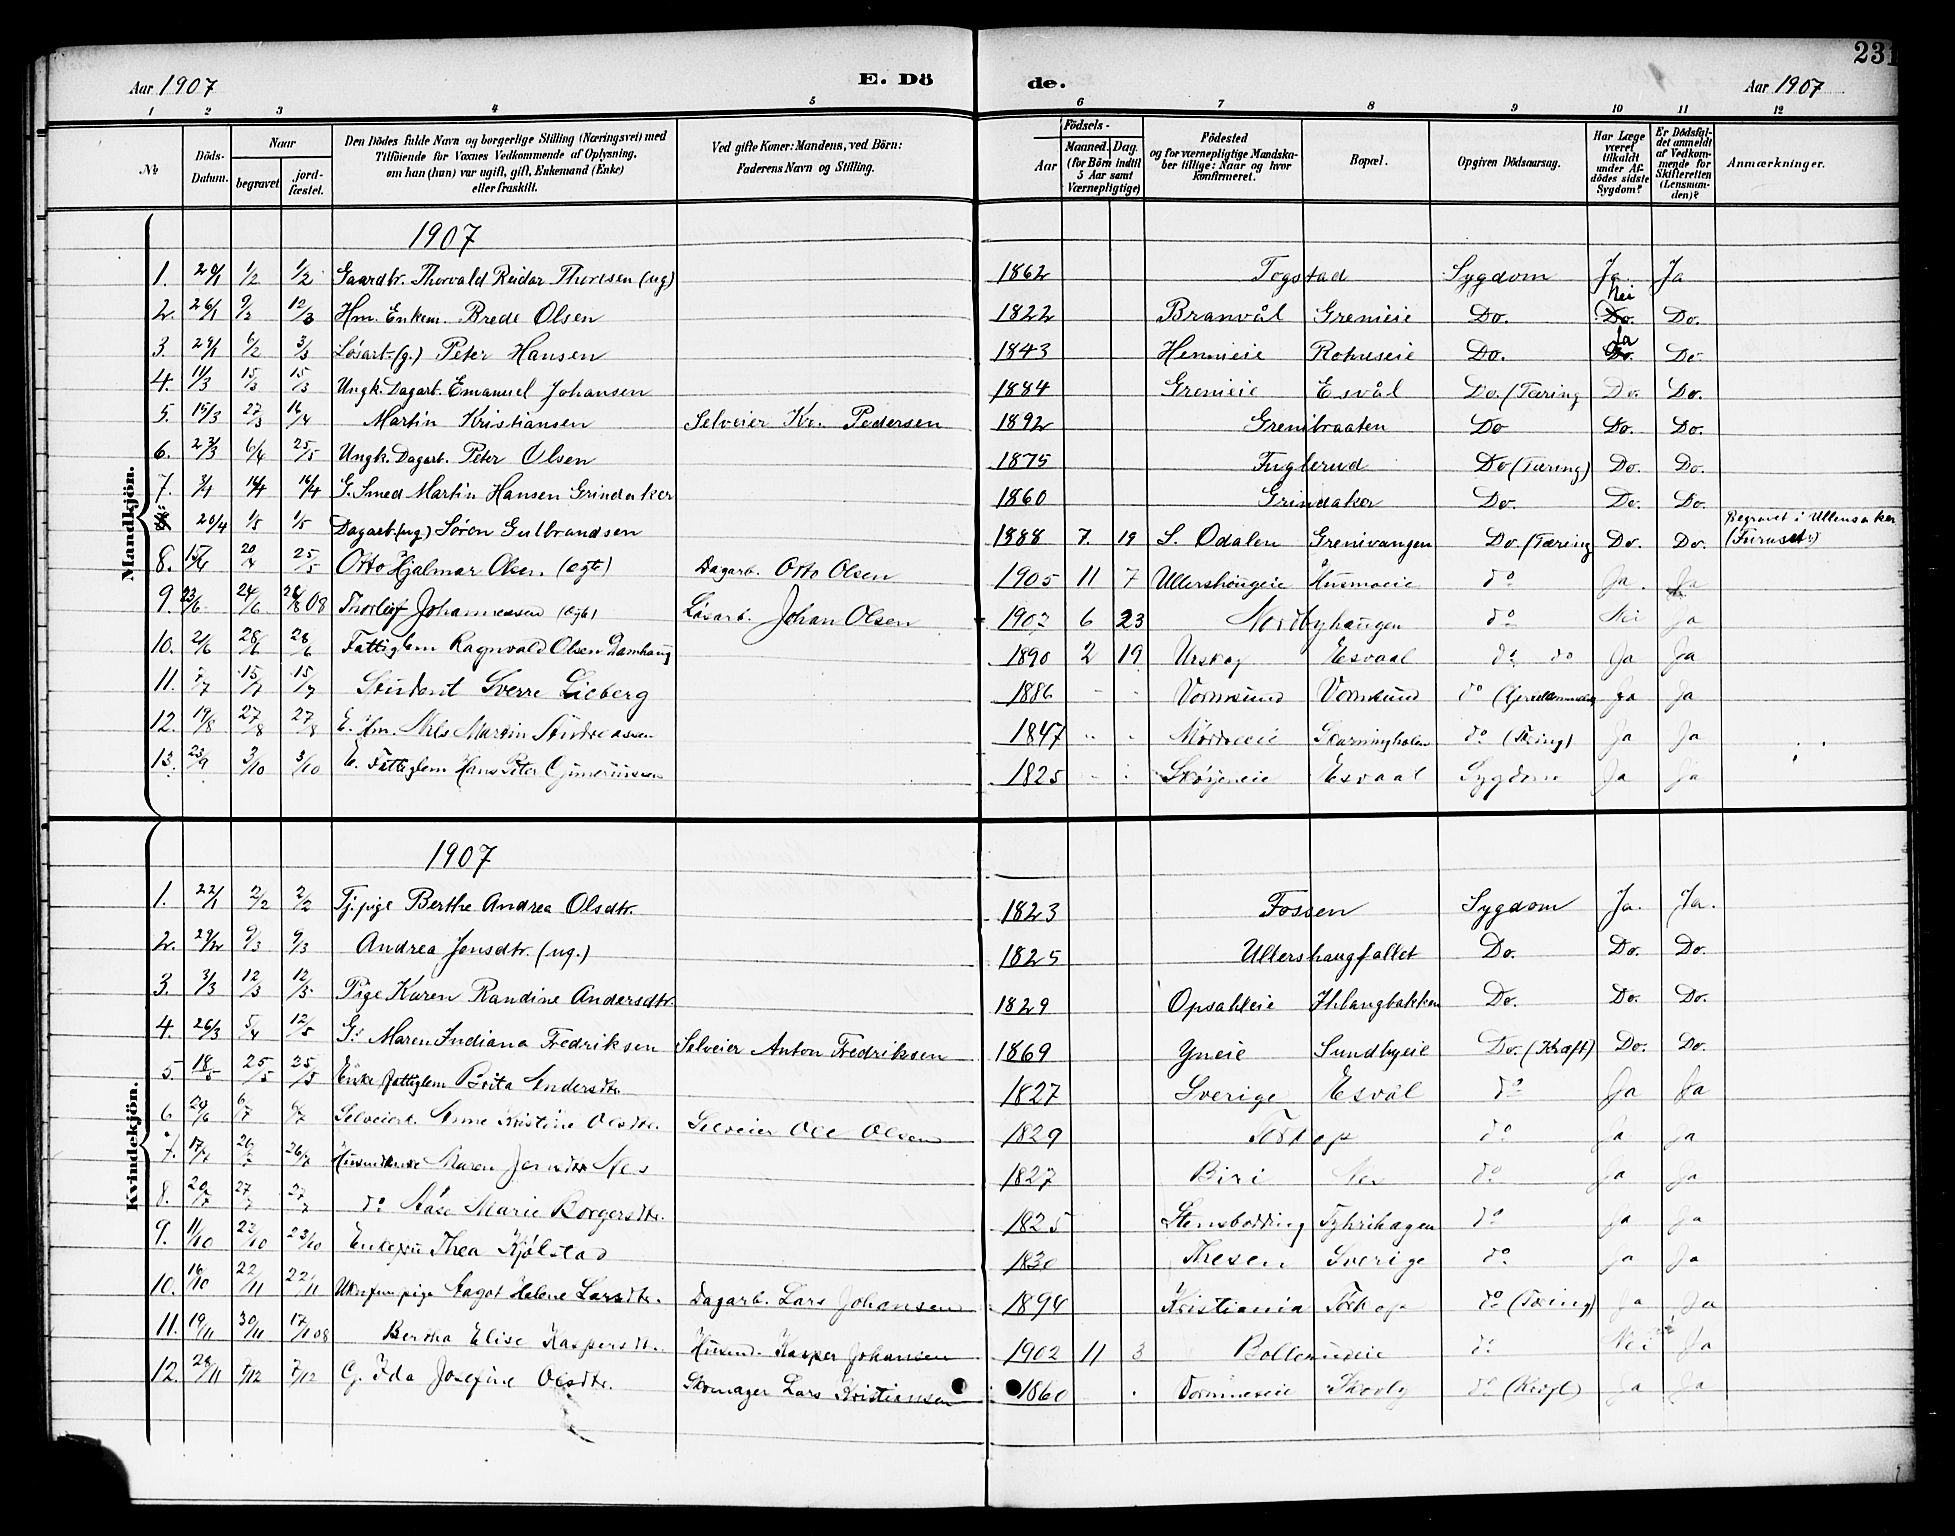 231
Aar 1907 E. Dö de. Aar 1907
1 2 3 4 5 6 7 8 9 10 11 12
No Döds-Datum. Naar begravet jord-fæstet. Den Dödes fulde Navn og borgerlige Stilling (Næringsvei) med Tilföiende for Voxnes Vedkommende af Oplysning, om han (hun) var ugift, gift, Enkemand (Enke) eller fraskilt. Ved gifte Koner: Mandens, ved Börn: Faderens Navn og Stilling. Födsels- Aar Maaned. Dag. (for Börn indtil 5 Aar samt Værnepligtige) Födested og for værnepligtige Mandskaber tillige: Naar og hvor konfirmeret. Bopæl. Opgiven Dödsaarsag. Har Læge været tilkaldt under Afdödes sidste Sygdom? Er Dödsfaldet anmeldt af Vedkommende for Skifteretten (Lensmanden)? Anmærkninger.
Mandkjön.
1907
1. 1/2 1/2 Gaardbr. Thorvald Reidar Thoresen (ug) 1862 Togstad Sygdom Ja Ja
2. 26/1 9/2 12/3 Hm. Enkem. Brede Olsen 1822 Branvål Grenieie Do. Nei Do.
3. 29/1 6/2 3/3 Løsarb. (g.) Peter Hansen 1843 Hennieie Do. Ja Do.
4. 11/3 15/3 15/3 Ungk. Dagarb. Emanuel Johansen 1884 Grenieie Esvål Do. (Tæring Do. Do.
5. 15/3 27/3 16/4 Martin Kristiansen Selveier Kr. Pedersen 1892 Grenibraaten Do Do. Do.
6. 23/3 6/4 25/5 Ungk. Dagarb. Peter Olsen 1875 Fuglerud Do (Tæring) Do. Do.
7. 3/4 14/4 16/4 G. Smed Martin Hansen Grindaker 1860 Grindaker Do. Do. Do.
20/4 1/5 1/5 Dagarb. (ug) Søren Gulbrandsen 1888 7. 19 S. Odalen Grenivangen Do (Tæring Do. Do. Begravet i Ullensaker (Furuset)
8. 20/4 25/5 Otto Hjalmar Olsen. (ægte) Dagarb. Otto Olsen 1905 11 7 Ullershougeie Husmoeie do Ja. Ja
9. 23/6 24/6 08 Thorleif Johannessen (ægte) Løsarb. Johan Olsen 1907 6 23 Nordbyhaugen do Nei Ja
10. 21/6 28/6 28/6 Fattiglem Ragnvald Olsen Damhaug 1890 2 19 Urskog Esvaal do do Ja Ja
11. 7/7 15/7 15/7 Student Sverre Lieberg 1886 Vormsund Vormsund do Ja Ja
12. 19/8 27/8 27/8 E. Hm. Nils Martin Andreassen 1847 Mordreeie do (Tæring) Ja Ja
13. 23/9 3/10 3/10 E. Fattiglem Hans Peter Guneriussen 1825 Skøyeneie Esvaal Sygdom Ja Ja
Kvindekjön.
1907
1. 22/1 2/2 2/2 Tj.pige Berthe Andrea Olsdtr. 1823 Fossen Sygdom Ja. Ja.
2. 29/2 9/3 9/3 Andrea Jensdtr. (ug.) 1825 Ullershaugfallet Do. Do. Do.
3. 3/3 12/3 12/3 Pige Karen Randine Andersdtr. 1829 Opsahleie Ihlangbakken Do. Do. Do.
4. 26/3 5/4 12/5 G: Maren Indiana Fredriksen Selveier Anton Fredriksen 1869 Yneie Sundbyeie Do. (Kræft) Do. Do.
5. 18/5 25/5 25/5 Enke fattiglem Brita Andersdtr. 1827 Sverige Esvål do Ja Ja
6 29/6 6/7 6/7 Selveierk. Anne Kristine Olsdtr. Selveier Ole Olsen 1829 Torkop do Ja Ja
7. 17/7 26/7 26/7 Husmdenke Maren Jensdtr Nes 1827 Biri Nes do Ja Ja
8. 20/7 27/7 27/7 do Aase Marie Borgersdtr. 1825 Stensbodding Tyhrihagen do Ja Ja
9. 11/10 23/10 23/10 Enkefru Thea Kjølstad 1830 Thesen Sverige do Ja Ja
10. 16/10 22/11 22/11 Ukonf. pige Aagot Helene Larsdtr. Dagarb. Lars Johansen 1894 Kristiania Torkop do (Tæring) Ja Ja
11. 19/11 30/11 17/1 08 Bertha Elise Kaspersdtr. Husmd. Kasper Johansen 1902 11 3 Bollerudeie do Nei Ja
12. 28/11 7/12 7/12 G. Ida Josefine Olsdtr. Skomager Lars Kristiansen 1860 Skovly do Ja Ja